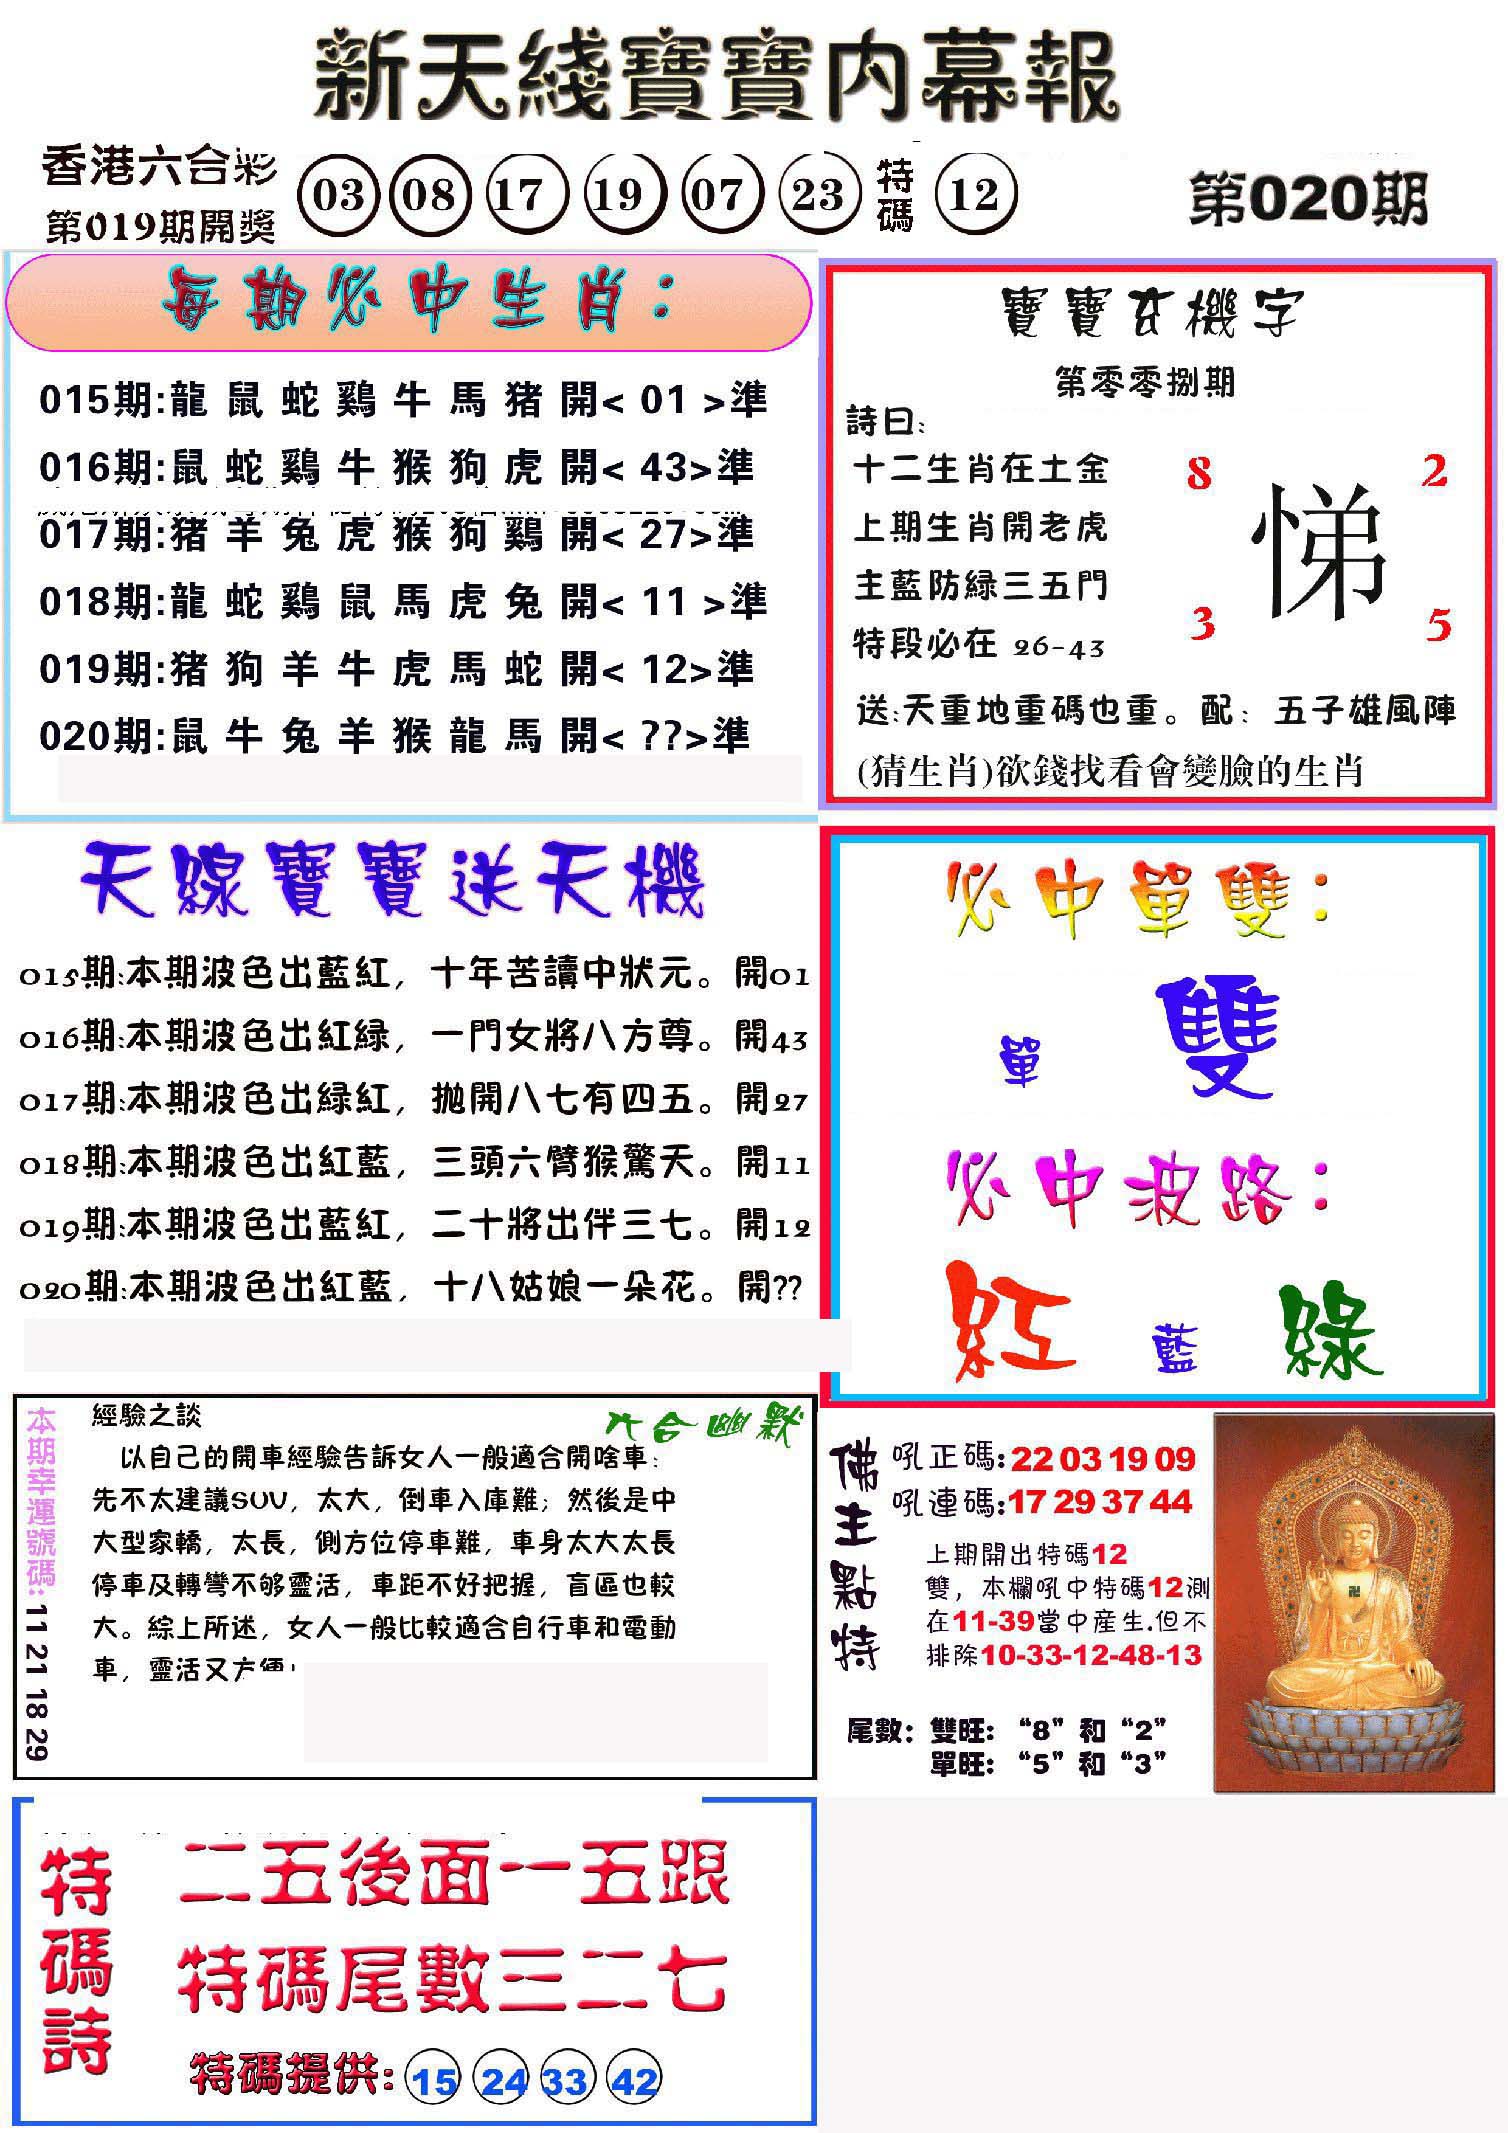 新天綫寶寶内幕報
香港六合彩
第019期開獎
03 08 17 19 07 23 特碼 12
第020期
每期必中生肖：
015期:龍 鼠 蛇 鷄 牛 馬 猪 開< 01 >準
016期:鼠 蛇 鷄 牛 猴 狗 虎 開< 43>準
017期:猪 羊 兔 虎 猴 狗 鷄 開< 27>準
018期:龍 蛇 鷄 鼠 馬 虎 兔 開< 11 >準
019期:猪 狗 羊 牛 虎 馬 蛇 開< 12>準
020期:鼠 牛 兔 羊 猴 龍 馬 開< ??>準
寶寶玄機字
第零零捌期
詩曰:
十二生肖在土金
上期生肖開老虎
主藍防緑三五門
特段必在 26-43
8 2
悌
3 5
送:天重地重碼也重。配：五子雄風陣
(猜生肖)欲錢找看會變臉的生肖
天線寶寶送天機
015期:本期波色出藍紅，十年苦讀中狀元。開01
016期:本期波色出紅緑，一門女將八方尊。開43
017期:本期波色出緑紅，拋開八七有四五。開27
018期:本期波色出紅藍，三頭六臂猴驚天。開11
019期:本期波色出藍紅，二十將出伴三七。開12
020期:本期波色出紅藍，十八姑娘一朵花。開??
必中單雙：
單 雙
必中波路：
紅 藍 綠
本期幸運號碼:11 21 18 29
六合幽默
經驗之談
以自己的開車經驗告訴女人一般適合開啥車：
先不太建議SUV，太大，倒車入庫難；然後是中
大型家轎，太長，側方位停車難，車身太大太長
停車及轉彎不够靈活，車距不好把握，盲區也較
大。綜上所述，女人一般比較適合自行車和電動
車，靈活又方便
佛主點特
吼正碼:22 03 19 09
吼連碼:17 29 37 44
上期開出特碼12
雙，本欄吼中特碼12測
在11-39當中産生.但不
排除10-33-12-48-13
尾數：雙旺：“8”和“2”
單旺：“5”和“3”
特碼詩
二五後面一五跟
特碼尾數三二七
特碼提供: 15 24 33 42